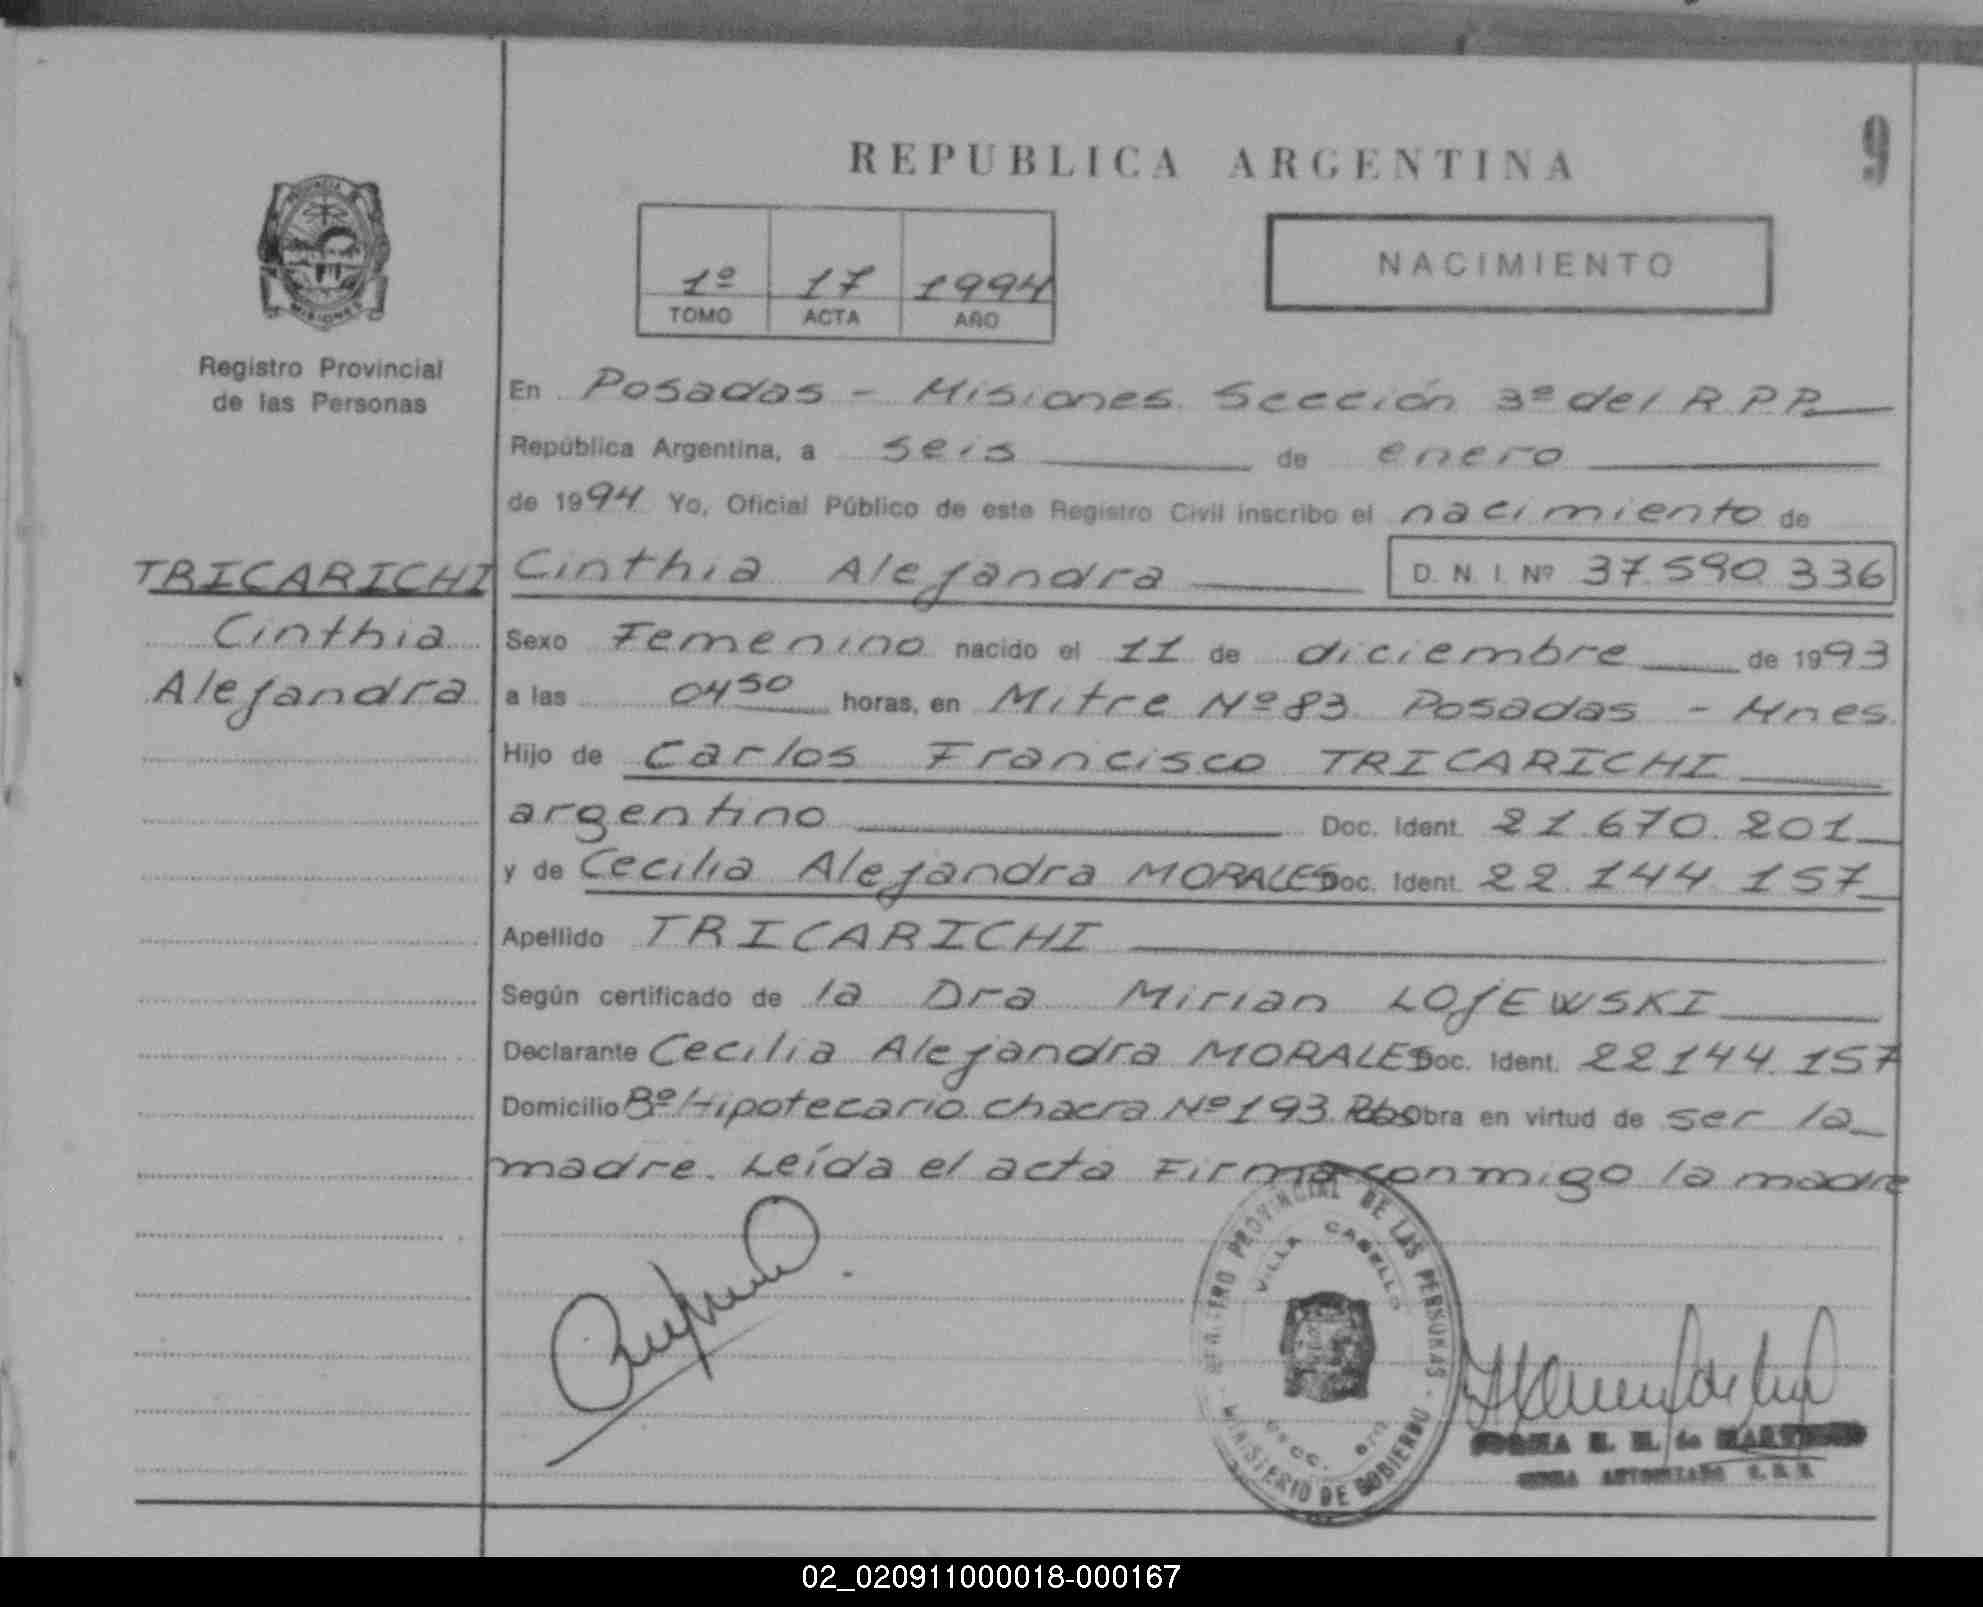 REPUBLICA ARGENTINA
9
PROVINCIA
MISIONES
Registro Provincial
de las Personas
1º 17 1994
TOMO ACTA AÑO
NACIMIENTO
En Posadas - Misiones Sección 3ª del R.P.P.
República Argentina, a seis de enero
de 1994 Yo, Oficial Público de este Registro Civil inscribo el nacimiento de
TRICARICHI
Cinthia
Alejandra
Cinthia Alejandra D. N. I. Nº 37.590.336
Sexo Femenino nacido el 11 de diciembre de 1993
a las 04 50 horas, en Mitre Nº 83 Posadas - Mnes.
Hijo de Carlos Francisco TRICARICHI
argentino Doc. Ident. 21.670.201
y de Cecilia Alejandra MORALES Doc. Ident. 22.144.157
Apellido TRICARICHI
Según certificado de la Dra Mirian LOJEWSKI
Declarante Cecilia Alejandra MORALES Doc. Ident. 22144.157
Domicilio Bº Hipotecario chacra Nº 193 Obra en virtud de ser la
madre. Leída el acta Firma conmigo la madre
REGISTRO PROVINCIAL DE LAS PERSONAS
VILLA CABELLO
MINISTERIO DE GOBIERNO
de
02_020911000018-000167